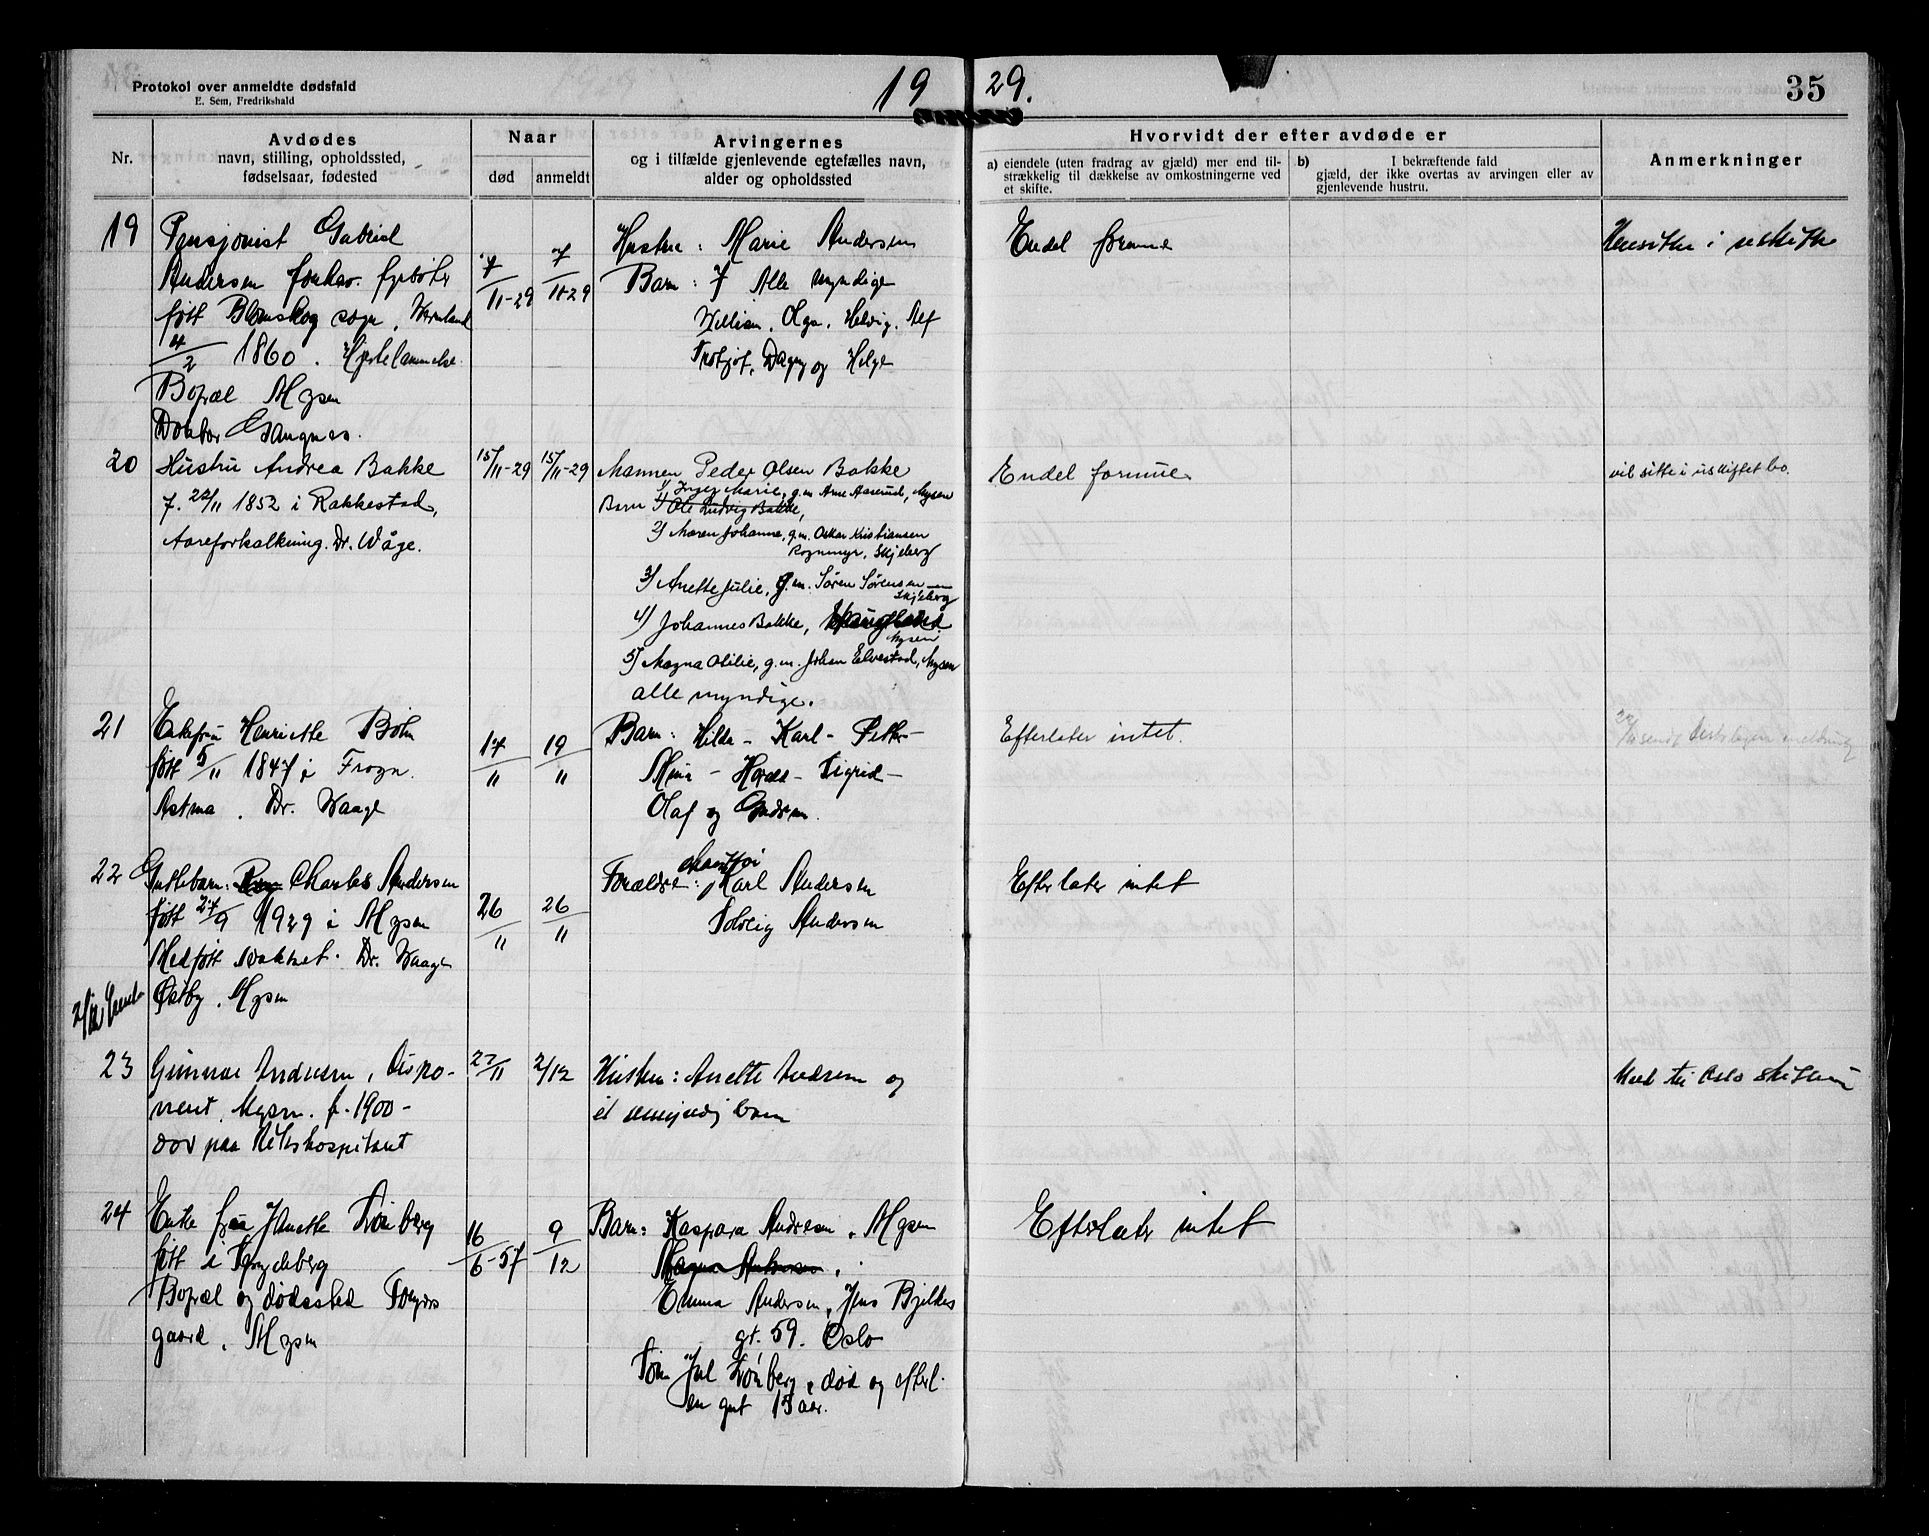 Protokol over anmeldte dødsfald
E. Sem, Fredrikshald
19 29.
35
Nr.
Avdødes
navn, stilling, opholdssted,
fødselsaar, fødested
Naar
død
anmeldt
Arvingernes
og i tilfælde gjenlevende egtefælles navn,
alder og opholdssted
Hvorvidt der efter avdøde er
a) eiendele (uten fradrag av gjæld) mer end til-
strækkelig til dækkelse av omkostningerne ved
et skifte.
b) I bekræftende fald
gjæld, der ikke overtas av arvingen eller av
gjenlevende hustru.
Anmerkninger
19
Pensjonist Gabriel
Andersen forhv. fyrbøter
født Blomskog sogn, Vermland
4/2 1860. Hjertelammelse.
Bopæl Mysen
Doktor Gangnes.
7/11-29
7/11-29
Hustru: Marie Andersen
Barn: 7 Alle myndige
William, Olga, Helvig, Alf
Fritjof, Dagny og Helge
Endel formue
Hensitter i uskifte
20
Hustru Andrea Bakke
f. 22/11 1852 i Rakkestad,
Aareforkalkning. Dr. Wåge.
15/11-29
15/11-29
Mannen Peder Olsen Bakke
1) Inger Marie, g.m. Arne Aaserud, Mysen
Barn 1) Ole Ludvig Bakke,
2) Maren Johanne, g.m. Oskar Kristiansen
Rognmyr, Skjeberg
3) Anette Julie, g.m. Søren Sørensen
Skjeberg
4) Johannes Bakke,
Mysen
5) Magna Otilie, g.m. Johan Elvestad, Mysen
alle myndige.
Endel formue
vil sitte i uskiftet bo.
21
Enkefru Henriette Bøhn
født 5/11 1847 i Frogn.
Astma. Dr. Waage
17/11
19/11
Barn: Hilda - Karl - Petter -
Mina - - Sigrid -
Olaf og
Efterlater intet.
22
Guttebarn: Charles Andersen
født 27/9 1929 i Mysen
Medfødt svakhet. Dr. Waage
Østby, Mysen
26/11
26/11
chauffør
Forældre: Karl Andersen
Solveig Andersen
Efterlater intet
2/12
23
Gunnar Andresen, dispo-
nent, Mysen. f. 1900 -
død paa Rikshospitalet
27/11
2/12
Hustru: Anette Andresen og
et umyndig barn
Meld til Oslo skifteret
24
Enke fru Janette Trønberg
født i Spydeberg
Bopæl og dødssted Folkets
gaard, Mysen
16/6-57
9/12
Barn: Kaspara Andresen, Mysen
Magna Andersen,
Emma Andersen, Jens Bjelkes
gt. 59. Oslo
Søn Jul Trønberg, død og efterl.
en gut 13 aar.
Efterlater intet